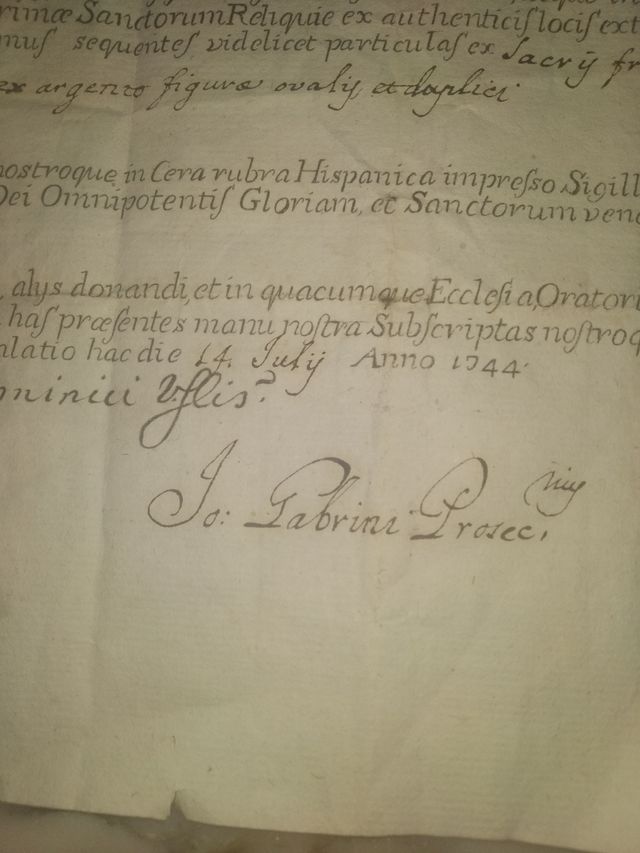 rimæ Sanctorum Reliquie ex authenticiſ lociſ ext
muſ sequenteſ videlicet particulaſ ex Sacrij fr
ex argento figuræ ovalij et duplici
nostroque in Cera rubra Hispanica impreſso Sigill
Dei Omnipotentiſ Gloriam, et Sanctorum vene
, alys donandi, et in quacumque Eccleſia, Oratori
haſ præſentes manu noſtra Subſcriptas noſtroq
latio hac die 14. Julij Anno 1744.
minici
Jo: Gabrini Prosec,